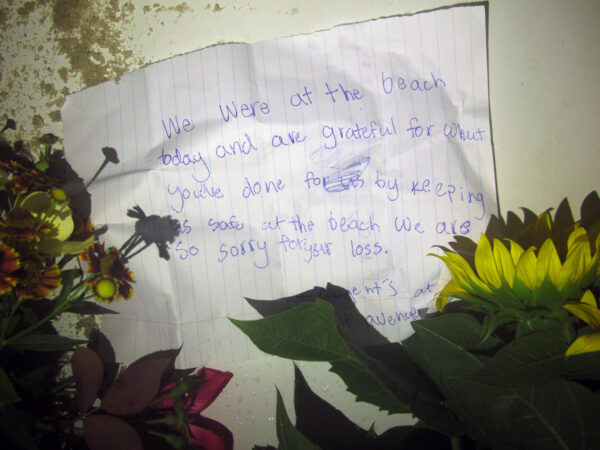 We were at the beach
today and are grateful for what
you've done for us by keeping
us safe at the beach we are
so sorry for your loss.
at
avenue